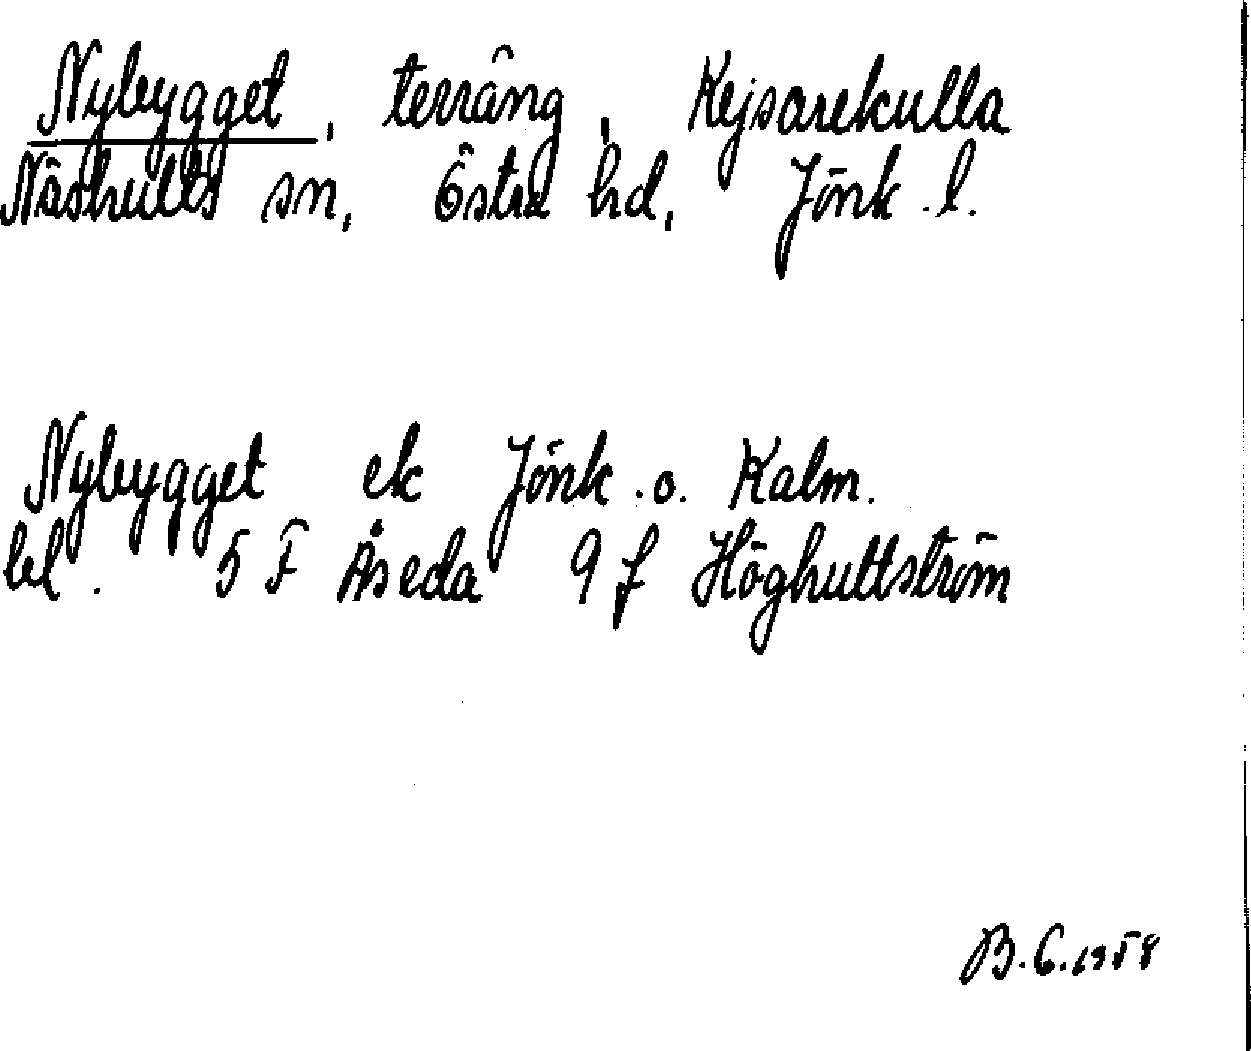 Nybygget, terräng, Kejsarekulla
Näshults sn, Östra hd, Jönk. l.
Nybygget ek Jönk. o. Kalm.
bl. 5 F Åseda 9 f Höghultström
B.G. 1958